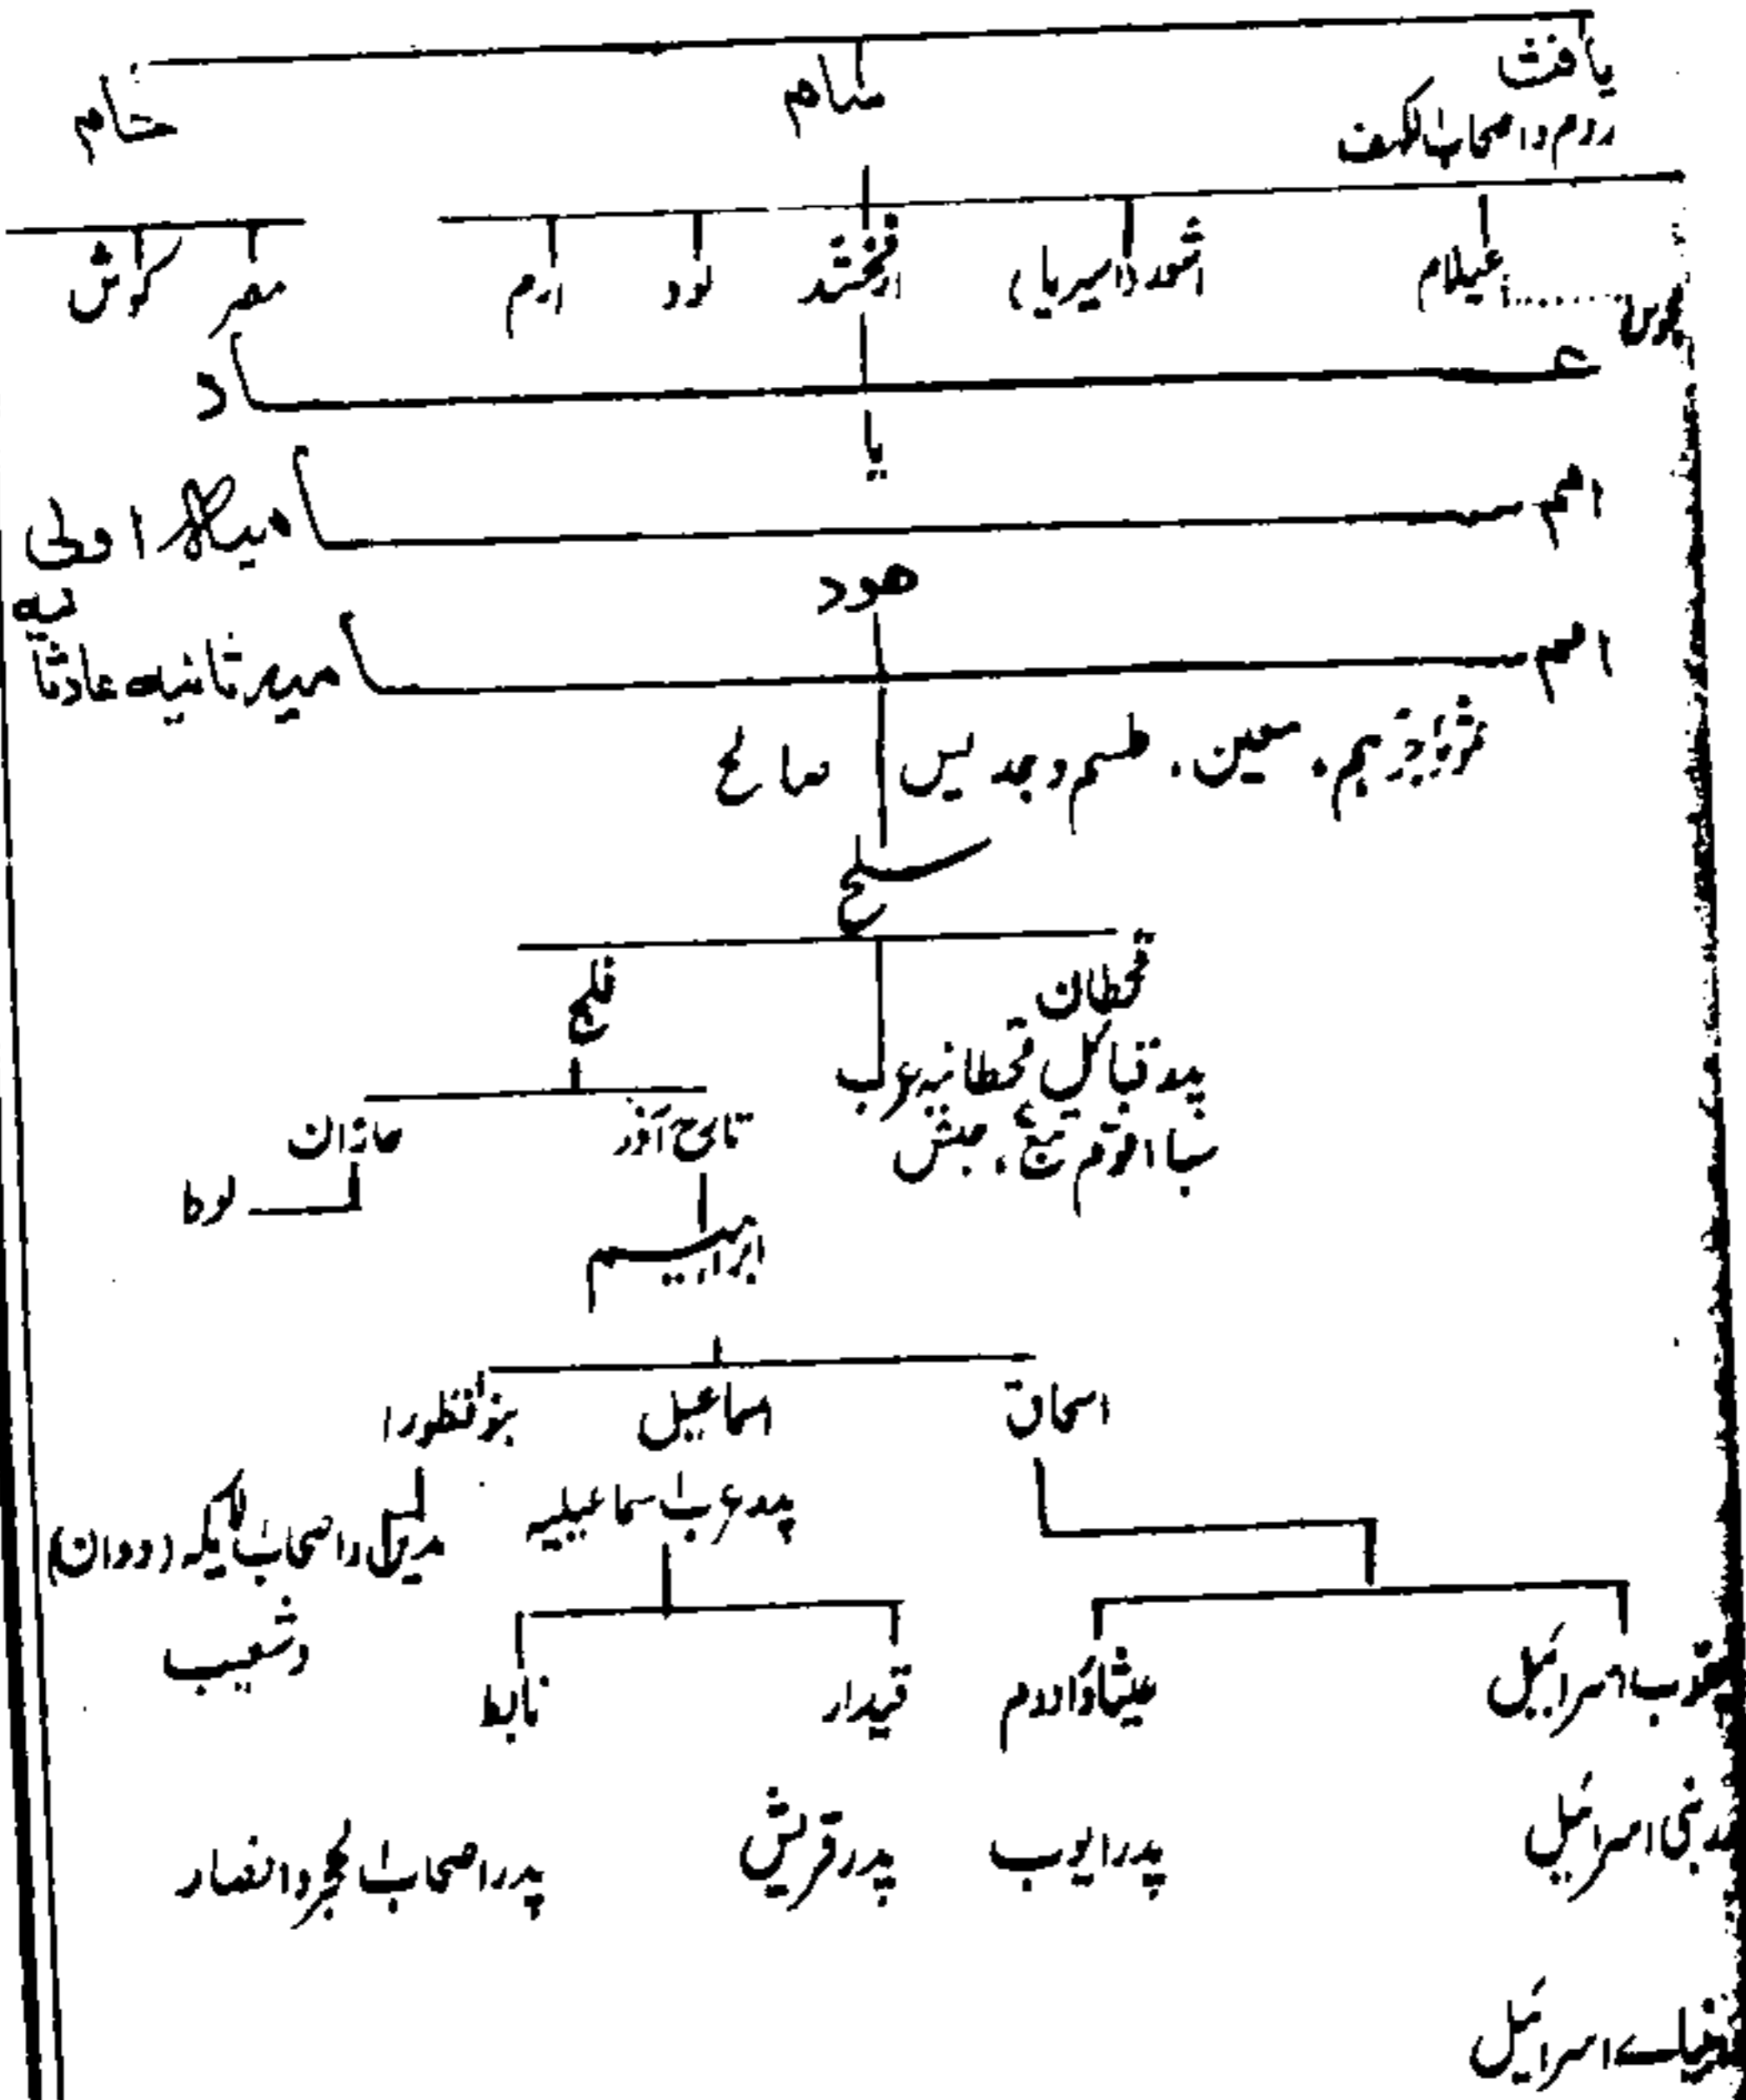 یافث سام حام
روم و اصحاب الکہف
مجوس ........ عیلام اشور (اسیریا) ارفخشد لود ارم مصر کوش
عاد
یا
امم سامیہ اولیٰ
ھود
امم سامیہ ثانیہ عاد ثانیہ
ثمود، جرہم، معین، طسم و جدیس صالح
سلح
قحطان فلج
پدر قبائل قحطانیہ عرب
سبا، قوم تبع، حبش
تارح آذر ھاران
لوط
ابراہیم
اسحاق اسماعیل بنو قطورا
پدر عرب اسماعیلیہ
مدین و اصحاب الایکہ (ددان)
و شعیب
یعقوب اسرائیل عیشاؤ ادوم قیدار نابط
پدر بنی اسرائیل پدر ایوب پدر قریش پدر اصحاب الحجر و انصار
انبیائے اسرائیل